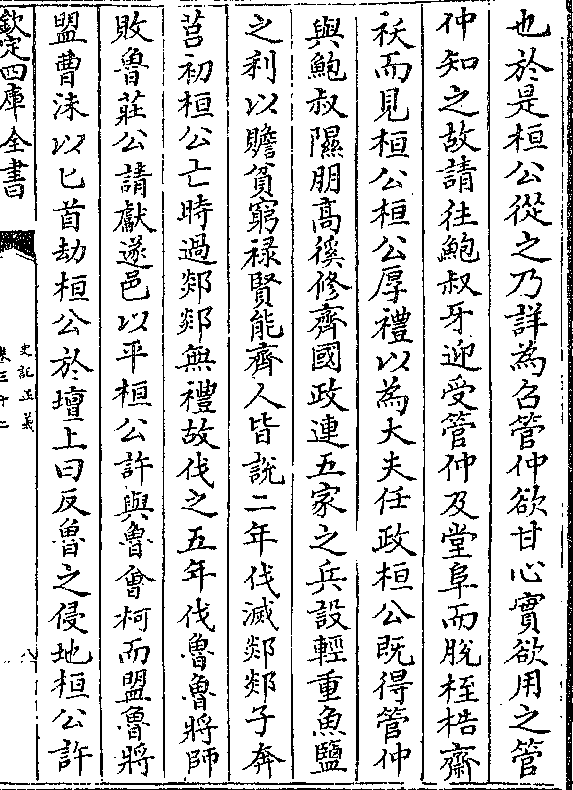 也於是桓公從之乃詳為召管仲欲甘心實欲用之管
仲知之故請往鮑叔牙迎受管仲及堂阜而脫桎梏齋
祓而見桓公桓公厚禮以為大夫任政桓公既得管仲
與鮑叔隰朋高徯修齊國政連五家之兵設輕重魚鹽
之利以贍貧窮祿賢能齊人皆說二年伐滅郯郯子奔
莒初桓公亡時過郯郯無禮故伐之五年伐魯魯將師
敗魯莊公請獻遂邑以平桓公許與魯會柯而盟魯將
盟曹沬以匕首劫桓公於壇上曰反魯之侵地桓公許
欽定四庫全書
史記正義
卷三十二
八